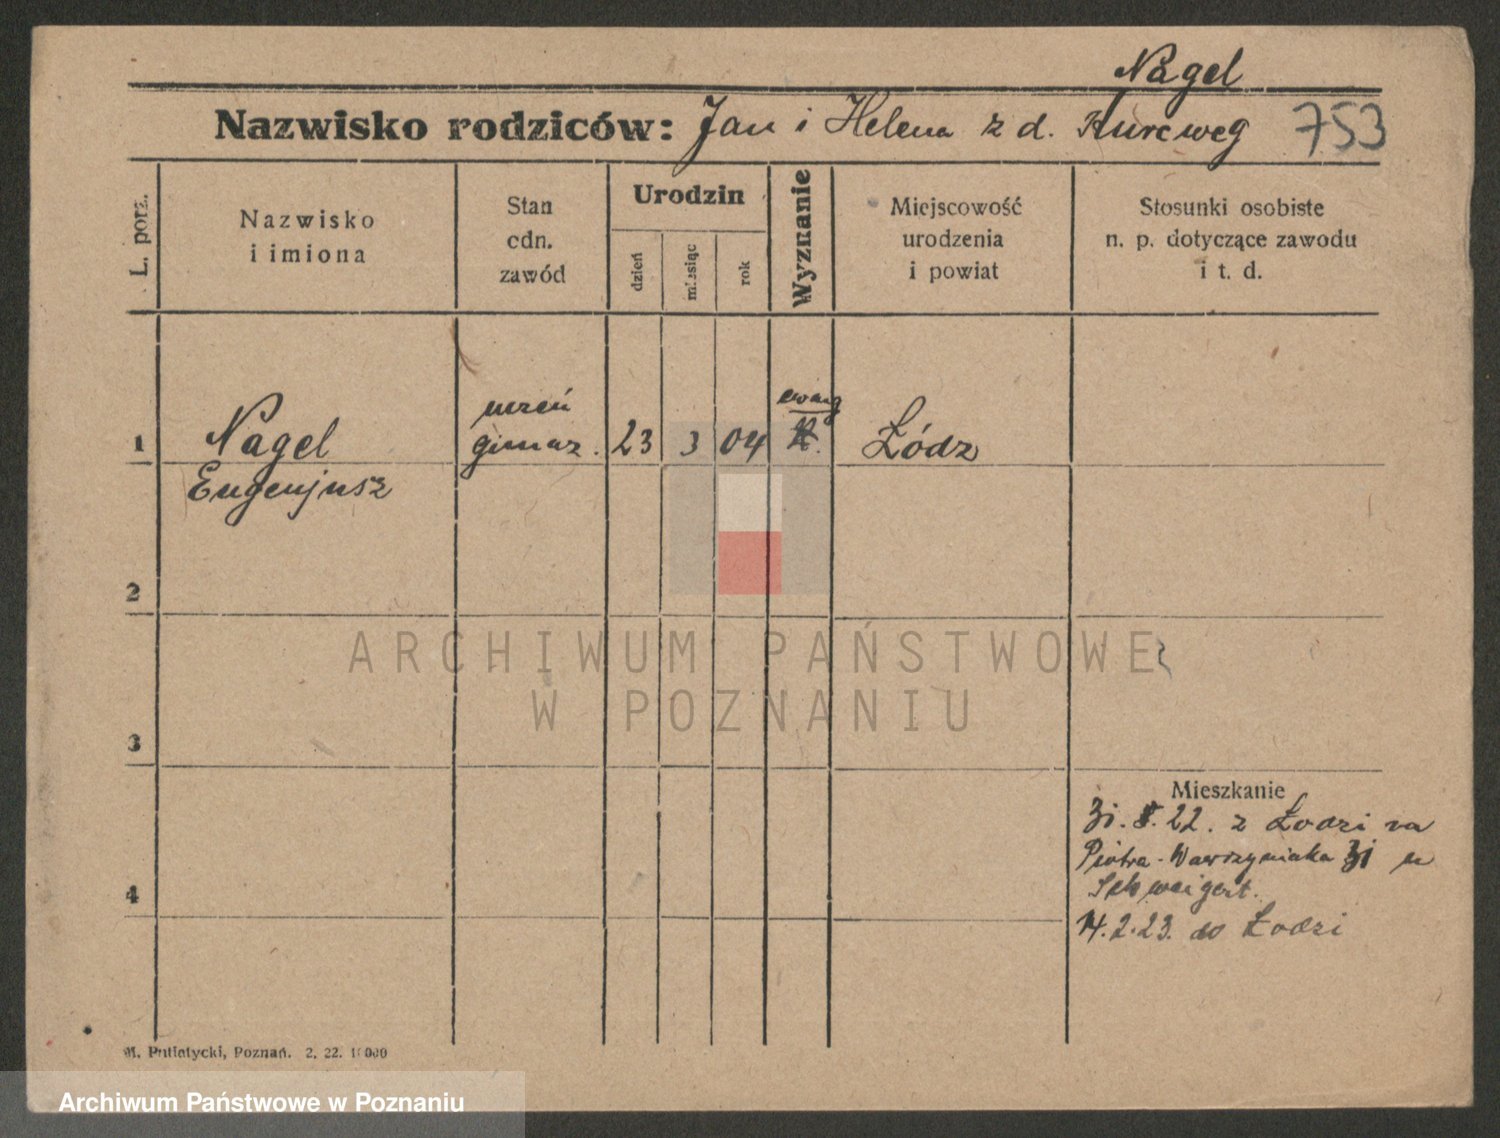 Nagel
Nazwisko rodziców: Jan i Helena z d. Kurcweg 753
L. porz.
Nazwisko
i imiona
Stan
cdn.
zawód
Urodzin
dzień
miesiąc
rok
Wyznanie
Miejscowość
urodzenia
i powiat
Stosunki osobiste
n. p. dotyczące zawodu
i t. d.
1 Nagel uczeń gimnaz. 23 3 04 ewang Łódz
Eugenjusz
2
ARCHIWUM PAŃSTWOWE
W POZNANIU
3
Mieszkanie
31. 8. 22. z Łodzi na
Piotra-Wawrzyniaka 31 u
Schweigert.
4
14.2.23. do Łodzi
M. Putiatycki, Poznań. 2. 22. 1000
Archiwum Państwowe w Poznaniu